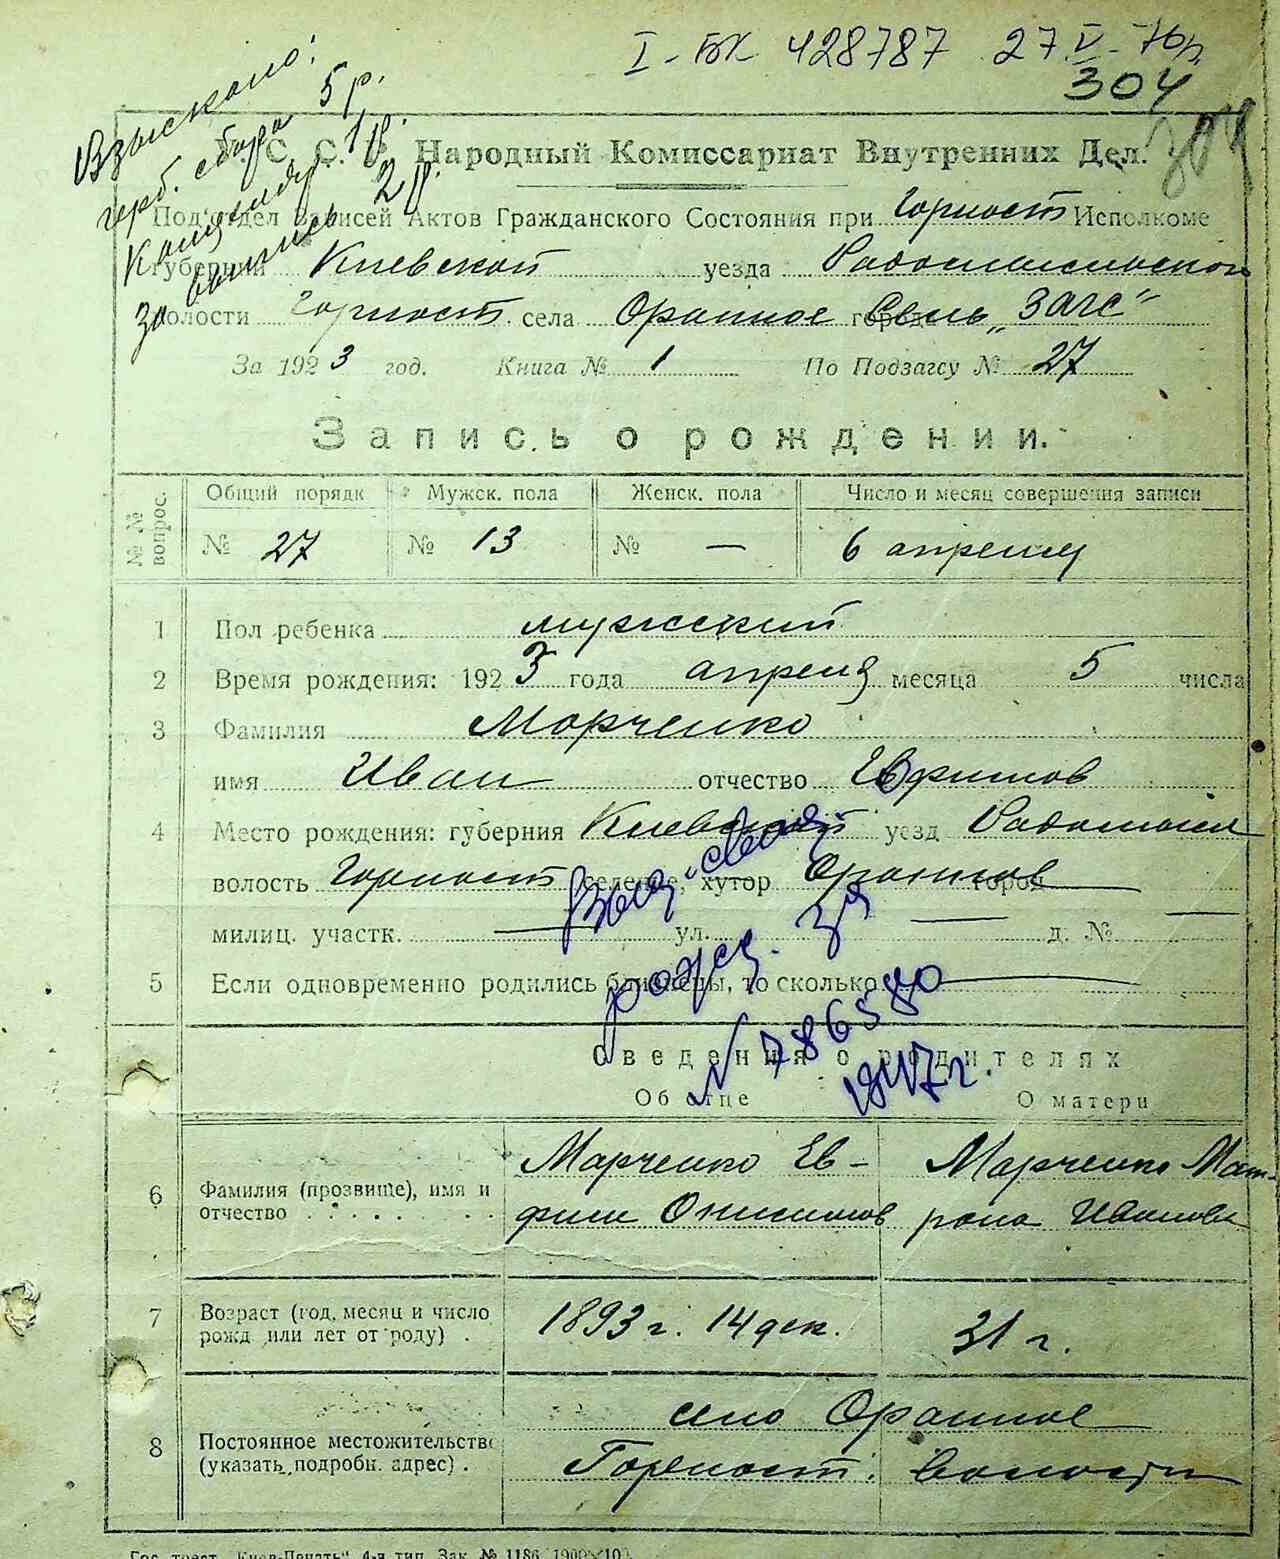 I-БК 428787 27.V-76р.
304
304
Взыскано:
герб. сбора 5 р.
Канцеляр 1 р.
За запись 2 р.
У. С. С. Р. Народный Комиссариат Внутренних Дел.
Под'отдел Записей Актов Гражданского Состояния при Горност Исполкоме
губернии Киевской уезда Радомысльской
волости Горност. села Оранное город Сель „ЗАГС"
За 1923 год. Книга № 1 По Подзагсу № 27
Запись о рождении.
№ № вопрос.
Общий порядк Мужск. пола Женск. пола Число и месяц совершения записи
№ 27 № 13 № — 6 апреля
1 Пол ребенка мужский
2 Время рождения: 1923 года апреля месяца 5 числа
3 Фамилия Марченко
имя Иван отчество Евфимов
4 Место рождения: губерния Киевской уезд Радомысл
волость Горност селение, хутор Оранное город —
милиц. участк. — ул. — д. № —
5 Если одновременно родились близнецы, то сколько —
Выд. свид.
рожд. за
№ 786580
1947г.
Сведения о родителях
Об отце О матери
6 Фамилия (прозвище), имя и отчество Марченко Ев- Марченко Мат-
фим Онисимов рона Иванова
7 Возраст (год, месяц и число рожд или лет от роду) . 1893 г. 14 дек. 31 г.
8 Постоянное местожительство (указать подробн. адрес) . село Оранное
Горност. волости
Гос. трест „Киев-Печать" 4-я тип. Зак. № 1186